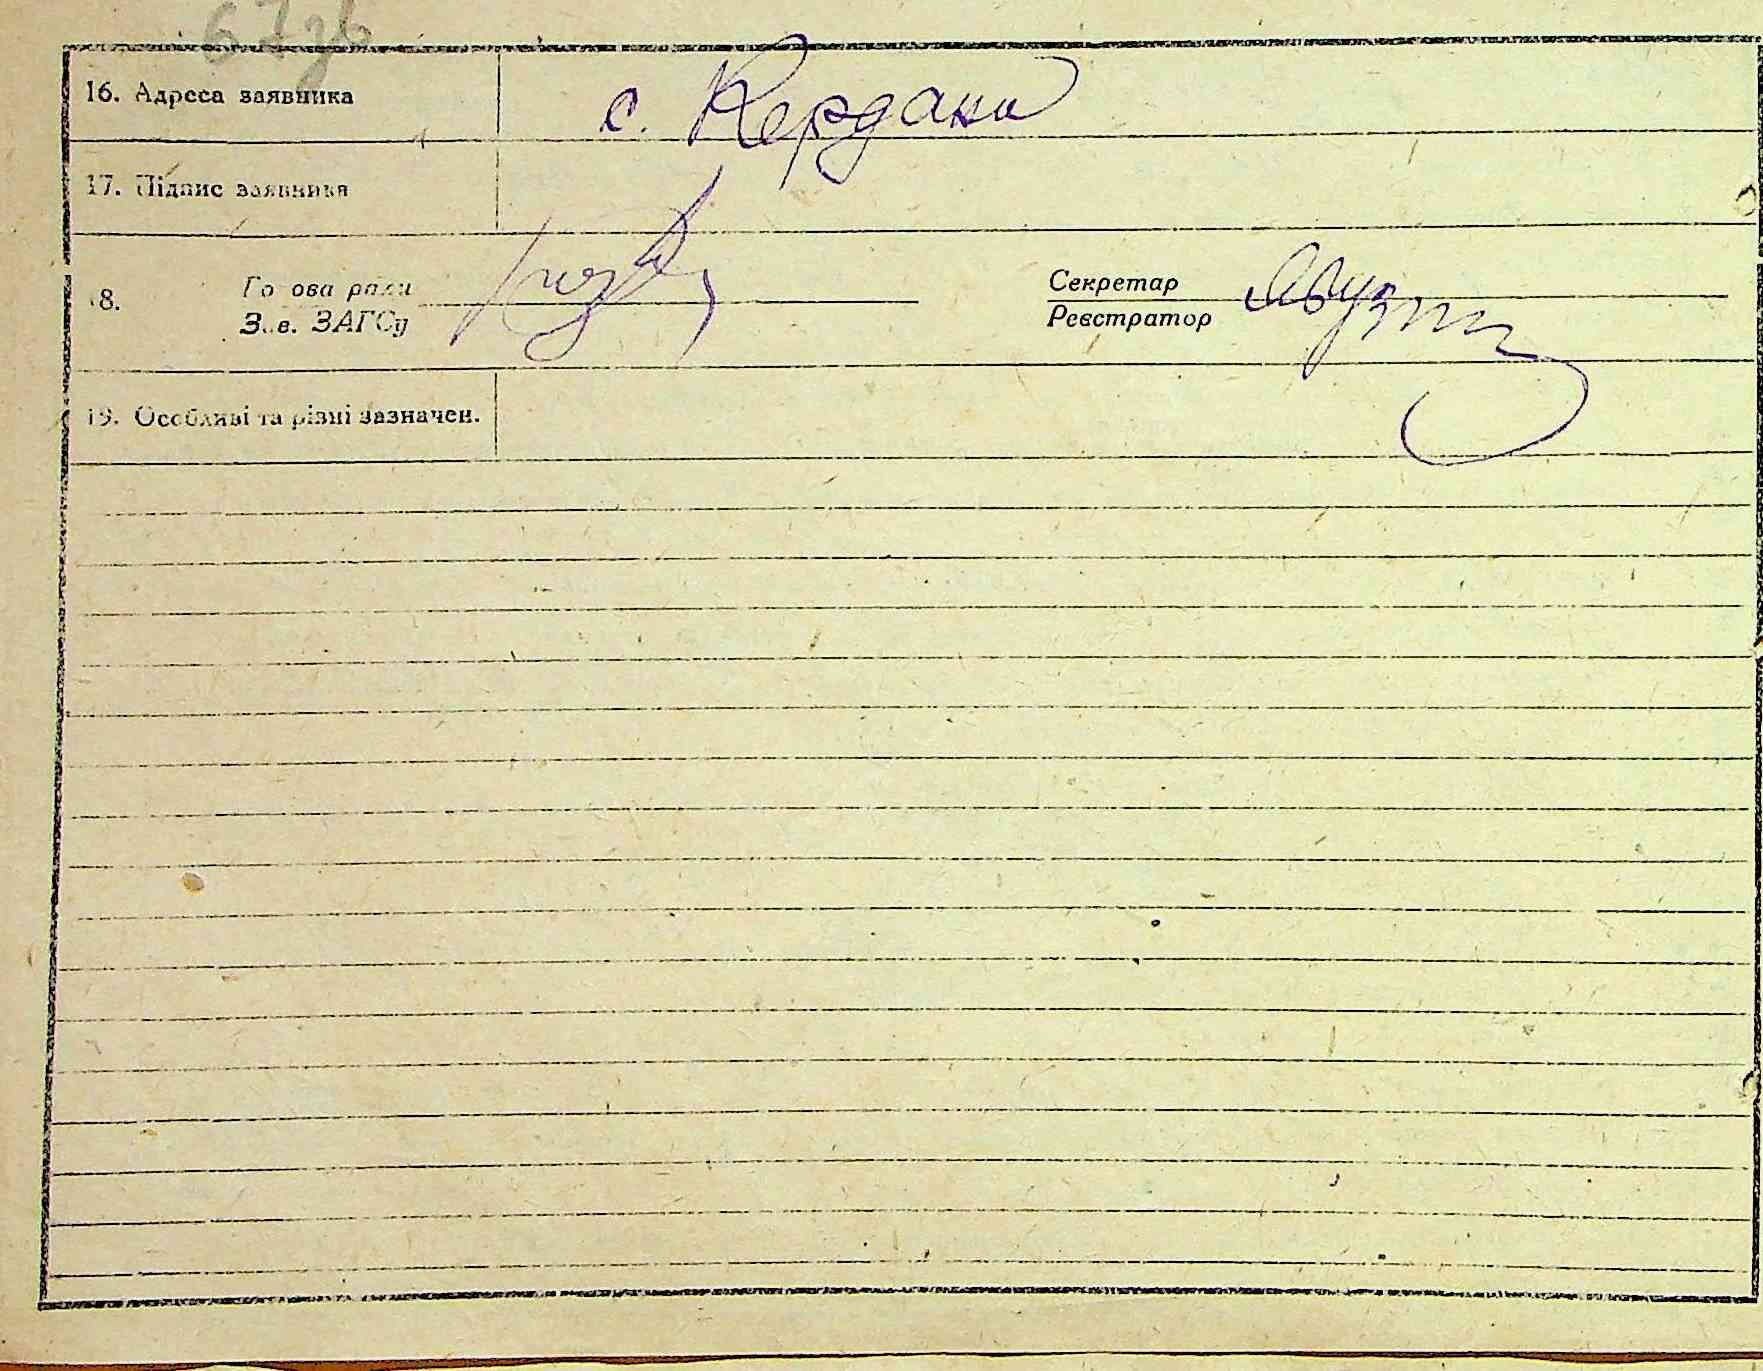 67зв
16. Адреса заявника с. Кердани
17. Підпис заявника
18. Голова ради Секретар
Зав. ЗАГСу Реєстратор
19. Особливі та різні зазначен.